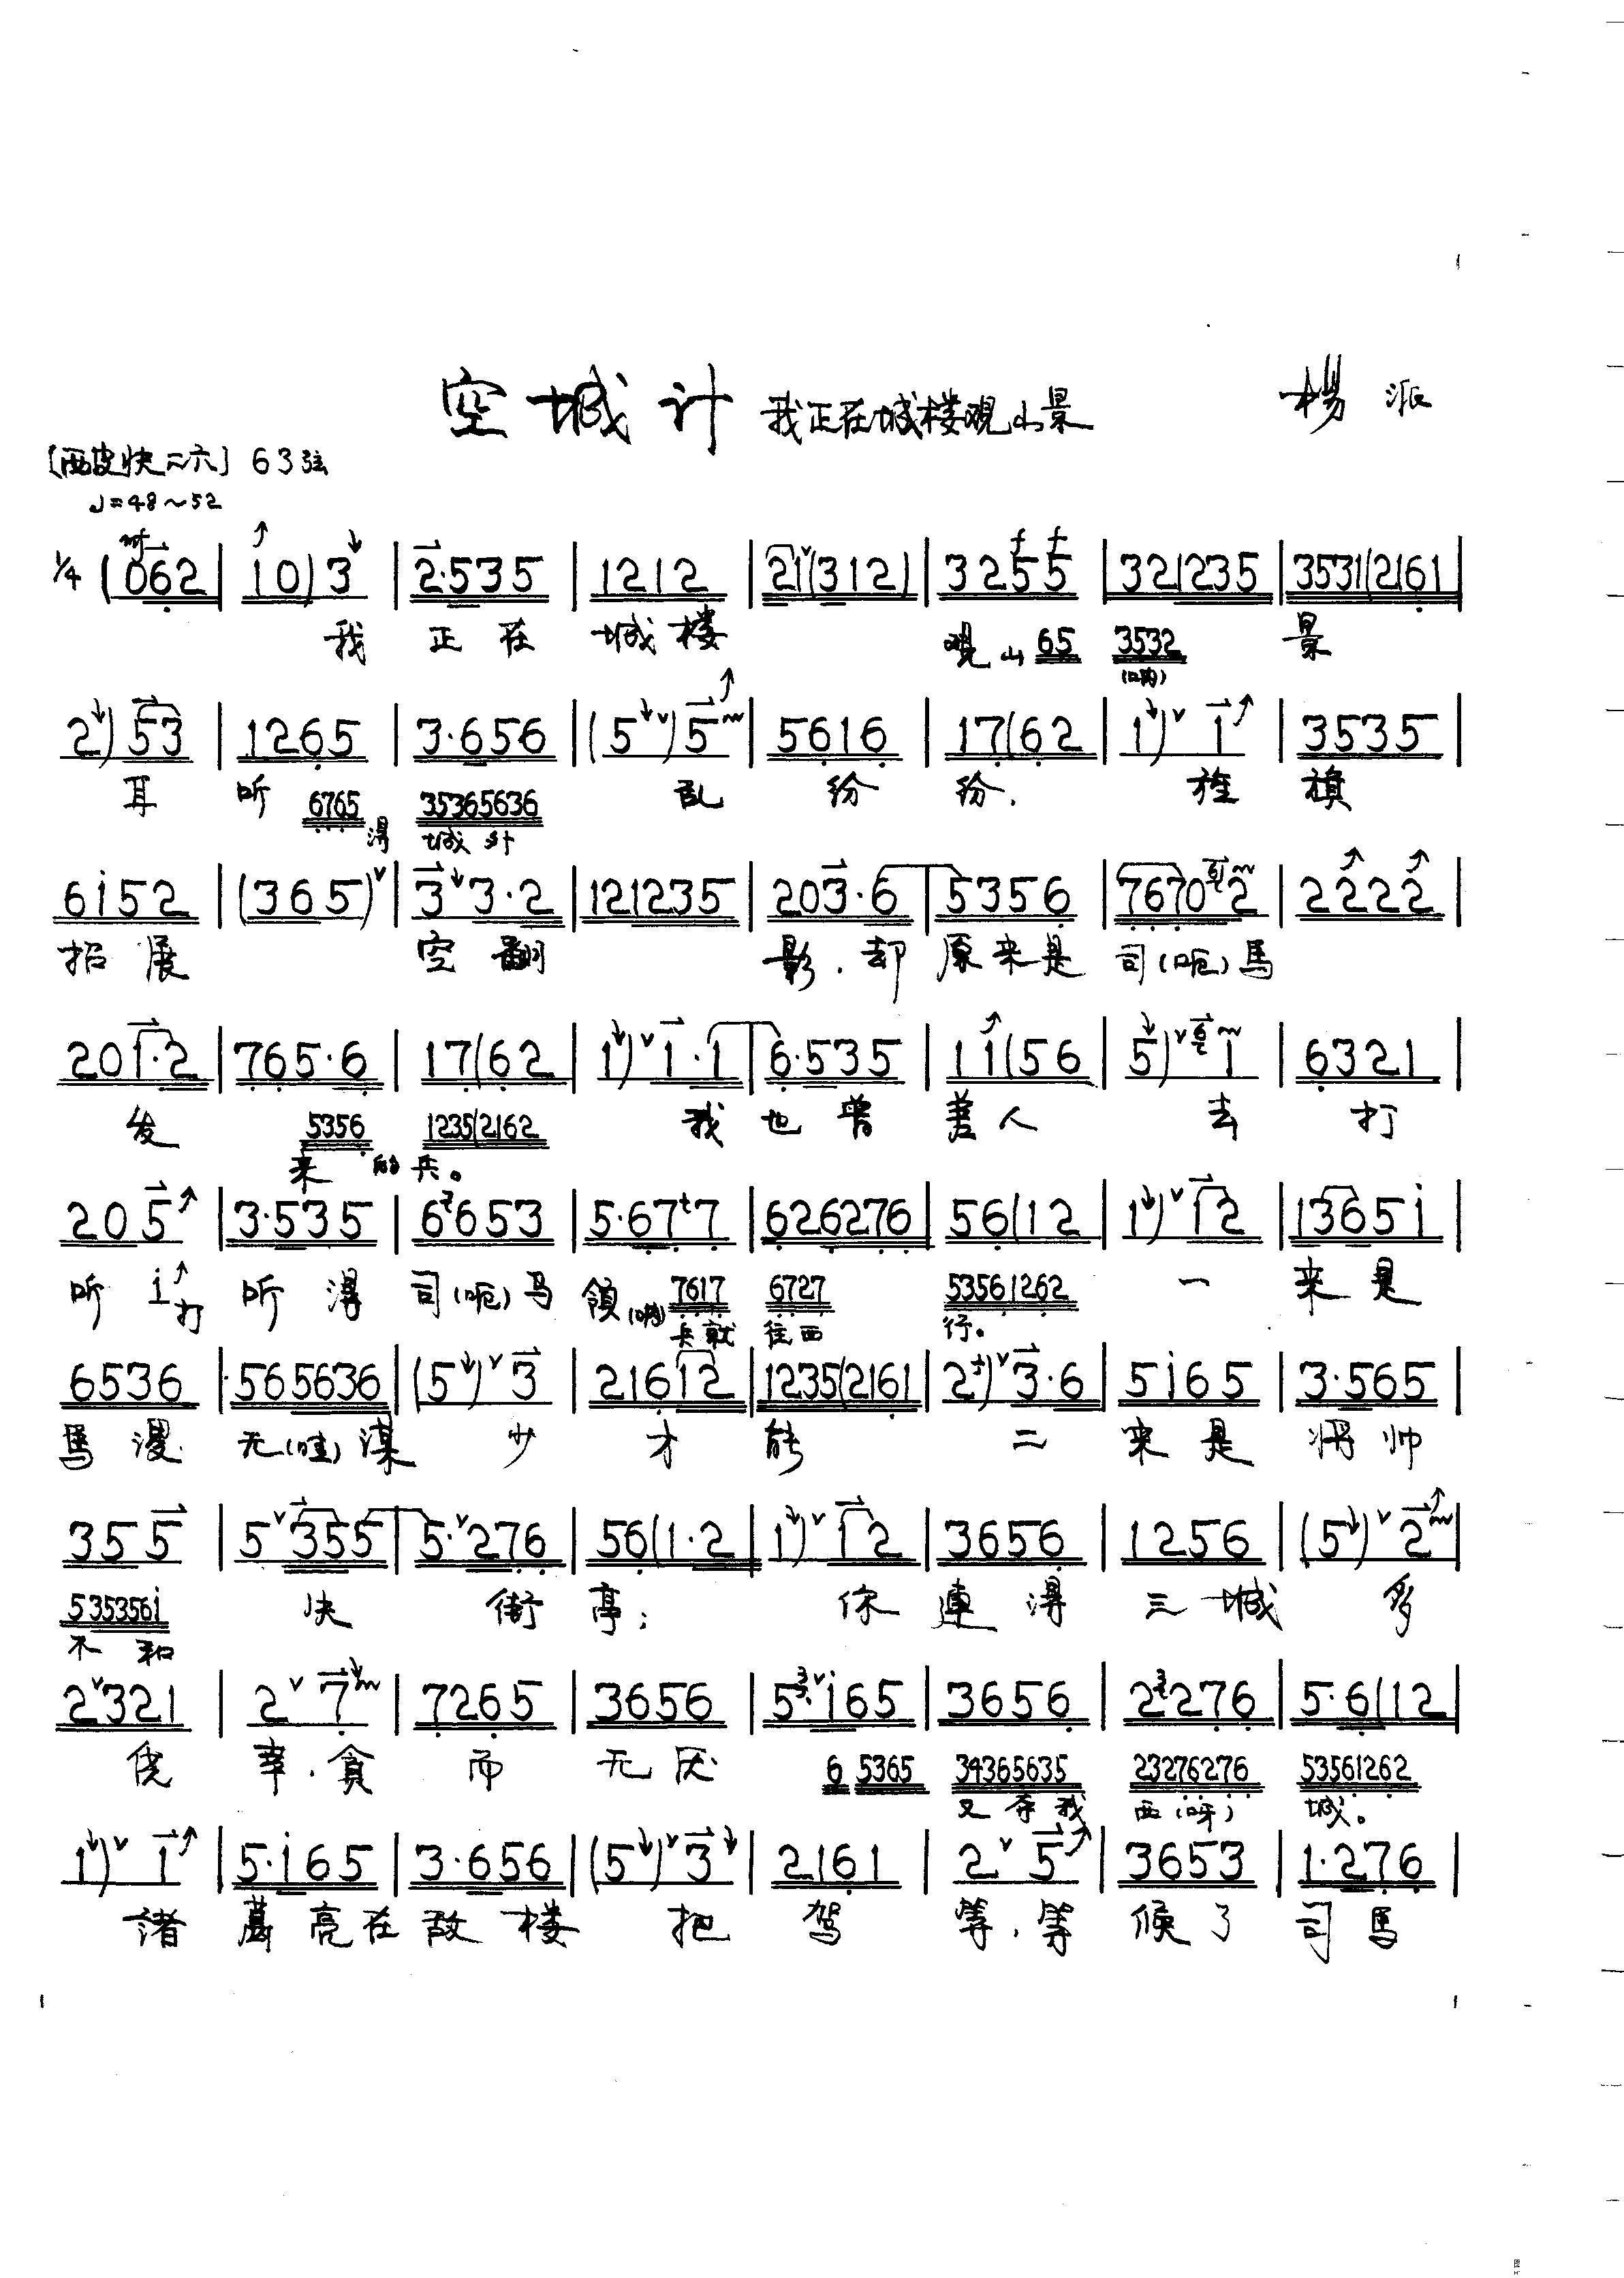 空城计 我正在城楼观山景 楊派
〔西皮快二六〕 63弦
♩=48～52
1/4 (062 | 10) 3 | 2·535 | 1212 | 21(312) | 3255 | 321235 | 3531(2161 |
我 正在 城楼 观山 65 3532 (呐) 景
2) 53 | 1265 | 3·656 | (5) 5 | 5616 | 17(62 | 1) 1 | 3535 |
耳 听 6765 得 35365636 城外 乱 纷 纷. 旌 旗
6i52 | (365) | 3 3·2 | 121235 | 203·6 | 5356 | 7670 2 | 2222 |
招展 空翻 影.却 原来是 司(呃)馬
201·2 | 765·6 | 17(62 | 1) 1·1 | 6·535 | 11(56 | 5) 1 | 6321 |
发 5356 来的 1235(2162 兵。 我 也曾 差人 去 打
205 | 3·535 | 6653 | 5·677 | 626276 | 56(12 | 1) 12 | 13651 |
听 i 打 听得 司(呃)马 領(呐) 7617 兵就 6727 往西 53561262 行。 一 来是
6536 | 565636 | (5) 3 | 21612 | 1235(2161 | 2) 3·6 | 5i65 | 3·565 |
馬谡 无(哇)谋 少 才 能 二 来是 将帅
355 | 5 355 | 5·276 | 56(1·2 | 1) 12 | 3656 | 1256 | (5) 2 |
535356i 不和 失 街 亭; 你 連得 三城 多
2321 | 2 7 | 7265 | 3656 | 5 i65 | 3656 | 2276 | 5·6(12 |
侥 幸.貪 而 无厌 6 5365 34365635 又夺我 23276276 西(呀) 53561262 城。
1) 1 | 5·i65 | 3·656 | (5) 3 | 2161 | 2 5 | 3653 | 1·276 |
諸 葛亮在 敌楼 把 驾 等.等 候了 司馬